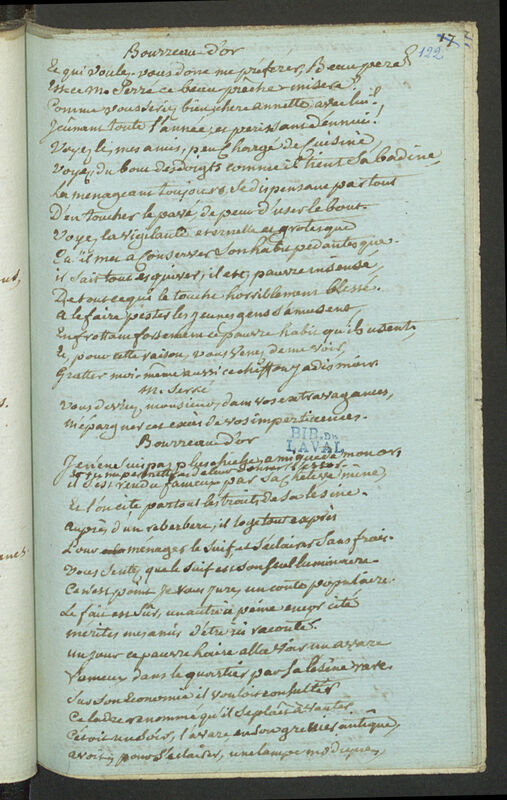 17
122
Bourreau-d'or
Et qui voulez-vous donc me préferer, Beaupere?
Est-ce M. Serre ce beau prêche misere?
Comme vous seriez bien, chere annette avec lui!
Jeûnant toute l'année, et perissant d'ennui!
Voyez le, mes amis, peu chargé de cuisine
Voyez du bout des doigts comme il tient sa badine,
La menageant toujours, se dispensant partout
D'en toucher le pavé, de peur d'user le bout.
Voyez la vigilance eternelle et grotesque
Qu'il met a conserver son habit pédantesque.
il sait tout esquiver, il est, pauvre insensé,
De tout ce qui le touche horriblement blessé.
A le faire pester les jeunes gens s'amusent,
En frottant fortement ce pauvre habit qu'ils usent,
Et, pour cette raison, vous venez de me voir,
Gratter moi-même aussi ce chiffon jadis noir
M. Serré
Vous devriez, monsieur, dans vos extravagances,
M'épargner cet excès de vos impertinences.
Bourreau-d'or
BIB. DE
LAVAL
Je n'en suis pas plus chiche, amique de mon or,
il s'est rendu fameux par sa chetive mine,
Et l'on cite partout les traits de sa lesine.
Auprès d'un reberbere, il loge tout exprès
Pour ménager le suif et s'éclairer sans frais.
Vous sentez que le suif est son seul luminaire.
Ce n'est point je vous jure, un conte populaire.
Le fait est sûr, un autre à peine encor cité
mérite mes amis d'être ici raconté.
un jour ce pauvre haire alla voir un avare
Fameux dans le quartier par sa lesine rare.
Sur son economie il vouloit consulter
Ce ladre renommé qu'il se plait à vanter.
C'etoit un soir, l'avare en son grenier antique,
avoit, pour s'éclairer, une lampe modique,